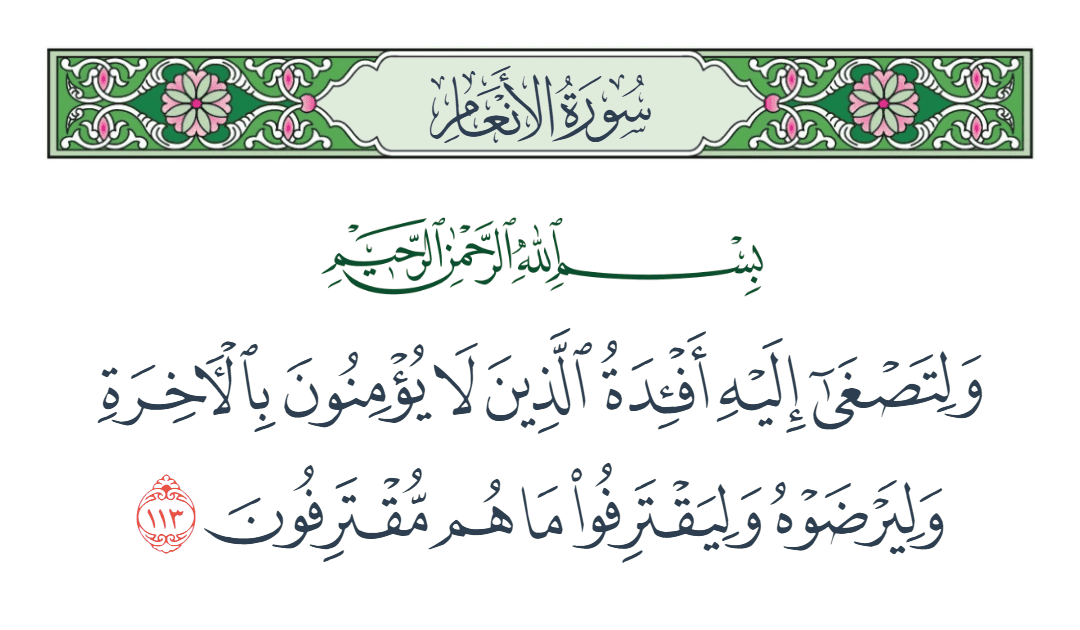 سُورَةُ الأَنْعَامِ
بِسْمِ ٱللَّهِ ٱلرَّحْمَٰنِ ٱلرَّحِيمِ
وَلِتَصْغَىٰٓ إِلَيْهِ أَفْـِٔدَةُ ٱلَّذِينَ لَا يُؤْمِنُونَ بِٱلْـَٔاخِرَةِ
وَلِيَرْضَوْهُ وَلِيَقْتَرِفُوا۟ مَا هُم مُّقْتَرِفُونَ ١١٣